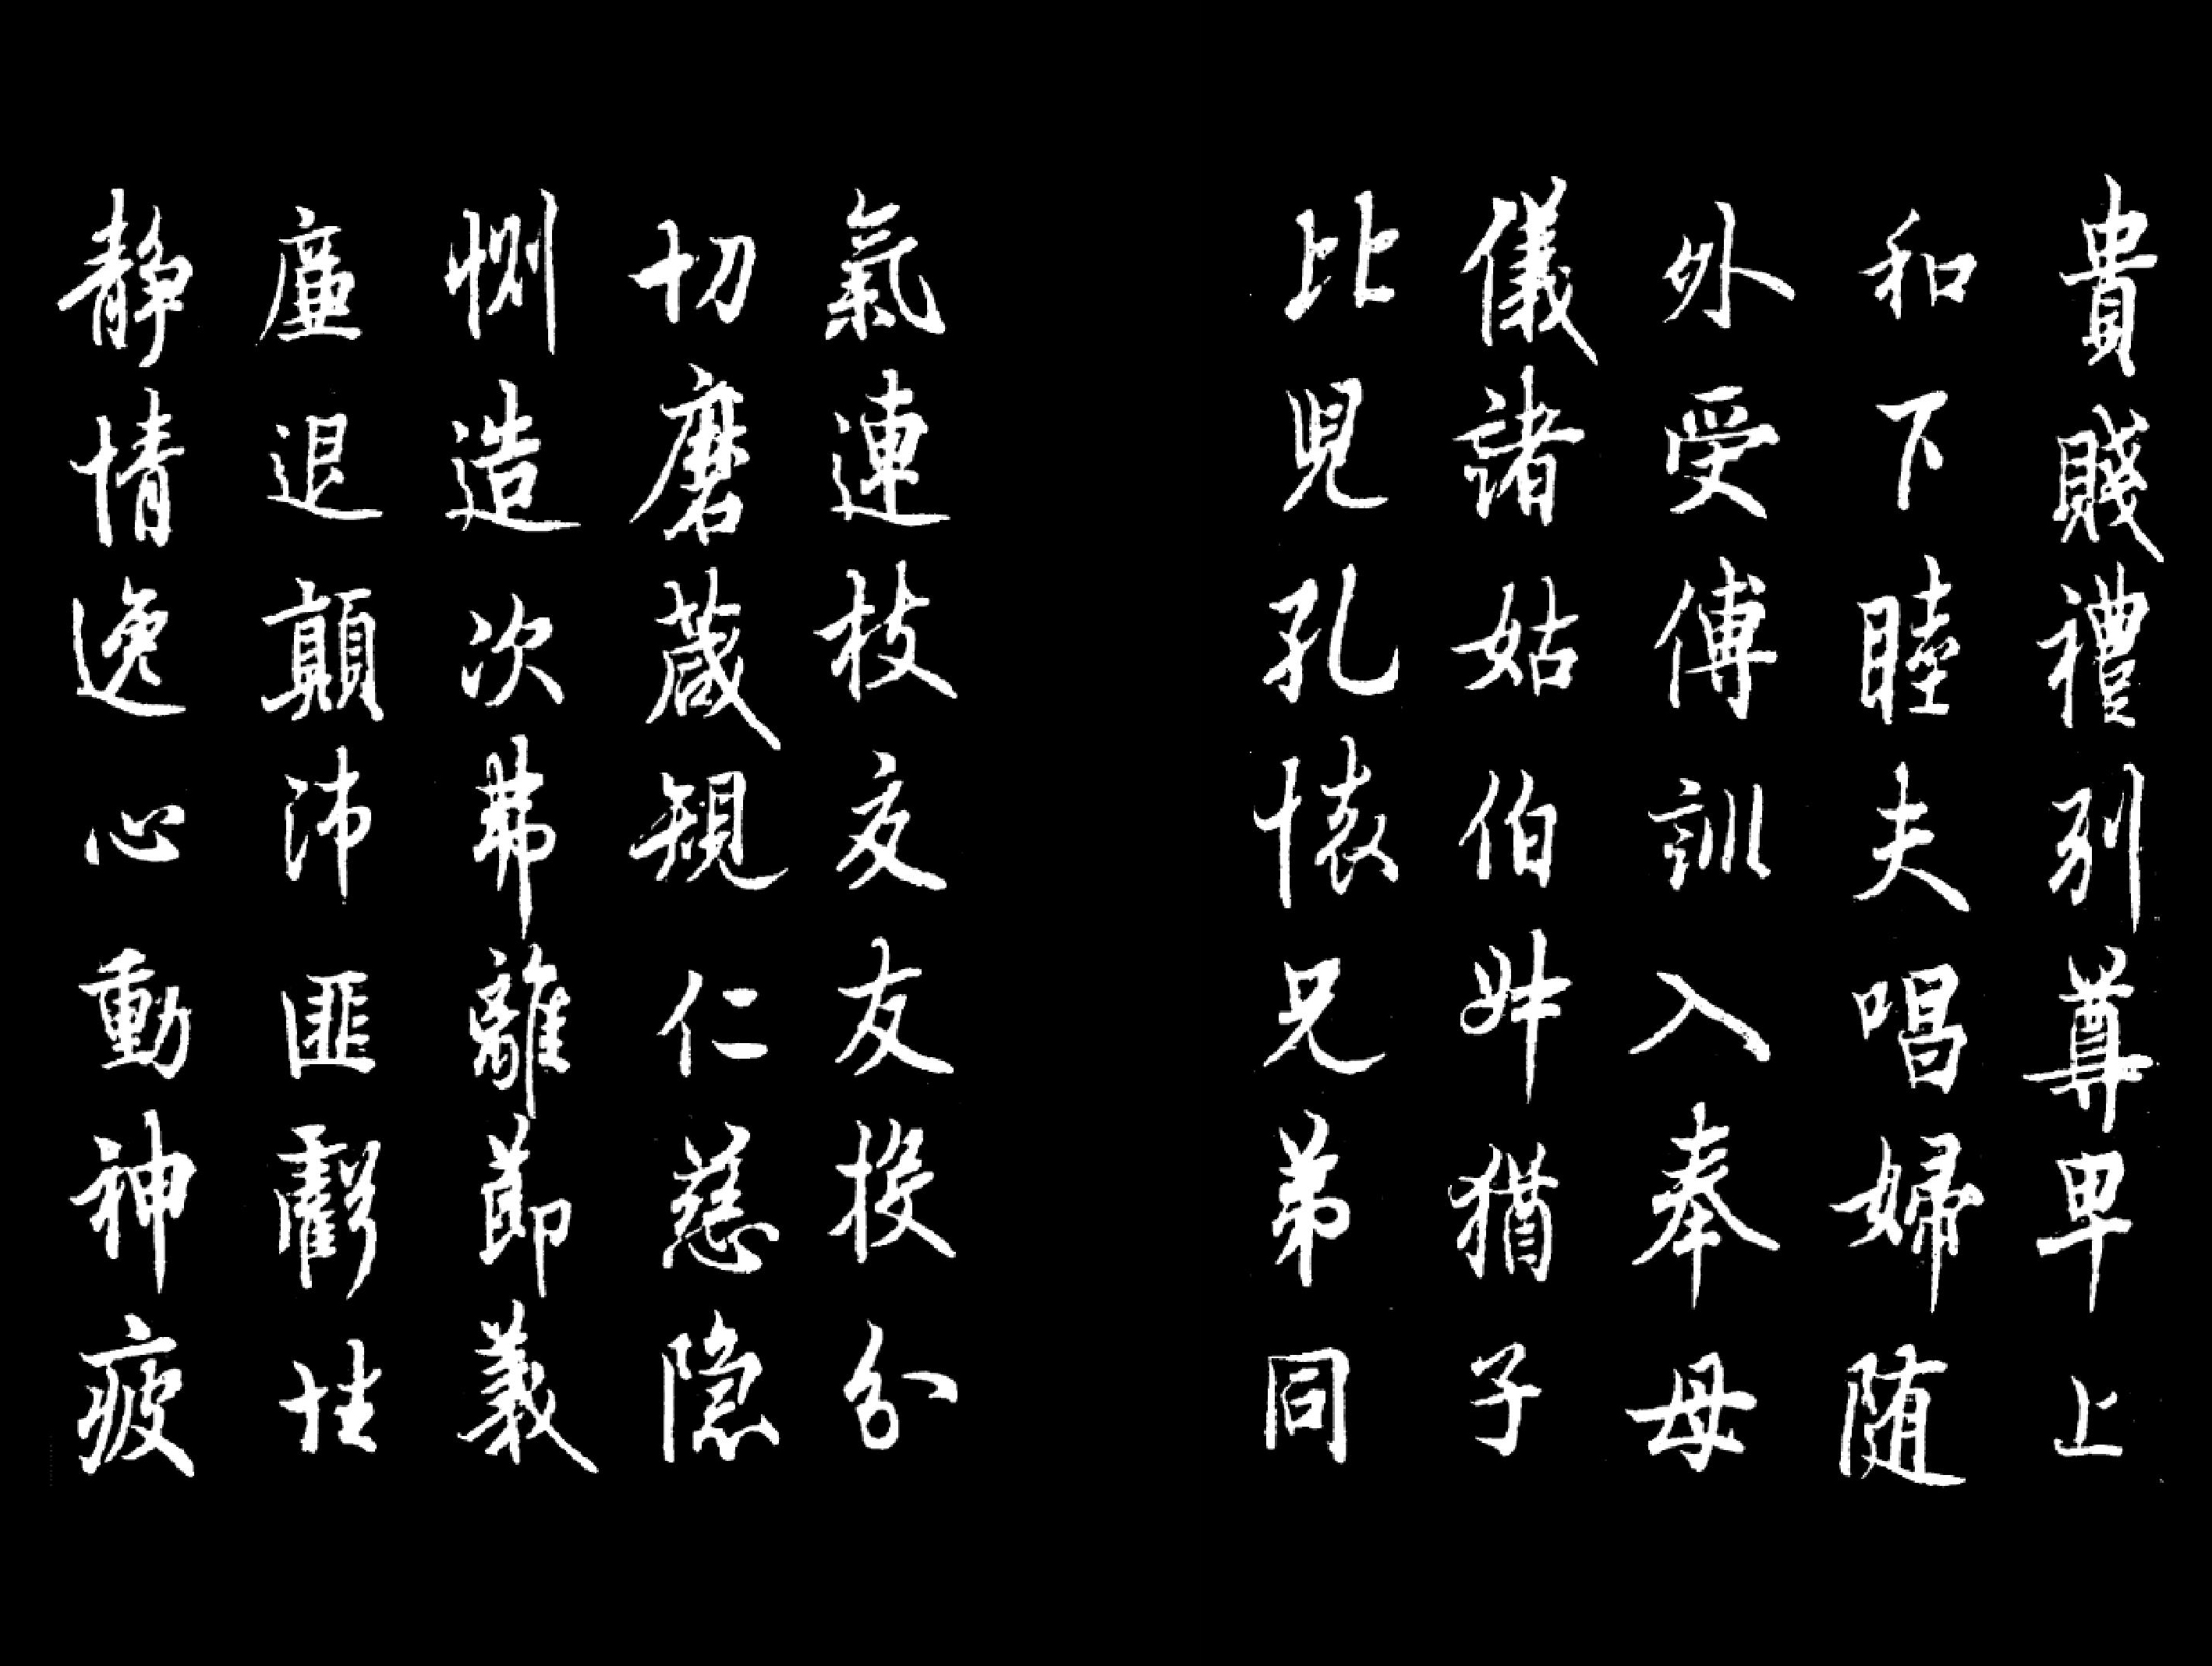 貴賤禮別尊卑上
和下睦夫唱婦随
外受傅訓入奉母
儀諸姑伯叔猶子
比兒孔懐兄弟同
氣連枝交友投分
切磨箴規仁慈隠
惻造次弗離節義
廉退顛沛匪虧性
静情逸心動神疲